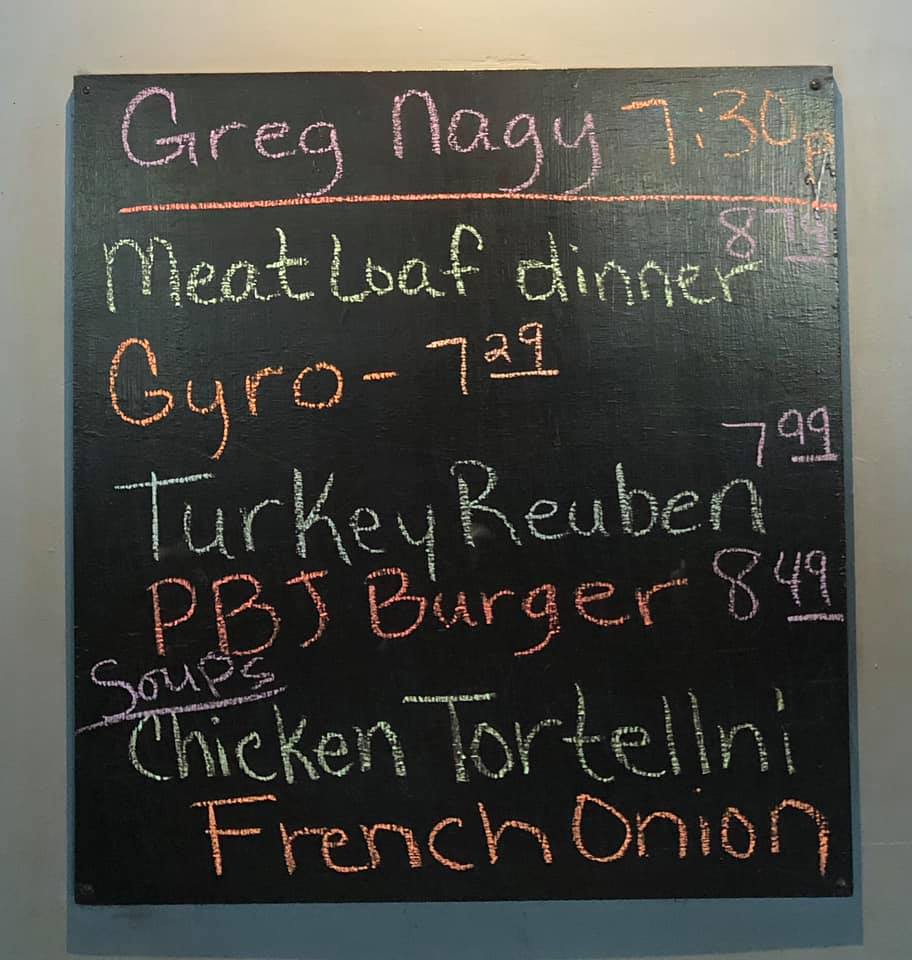 Greg Nagy 7:30p
Meatloaf dinner
Gyro - 7 29
7 99
Turkey Reuben
PBJ Burger 8 49
Soups
Chicken Tortellni
French Onion